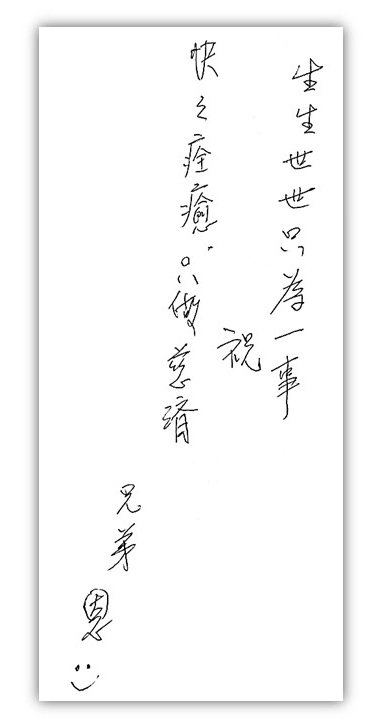 生生世世只為一事
祝
快之痊癒。只做慈濟
兄弟
恩